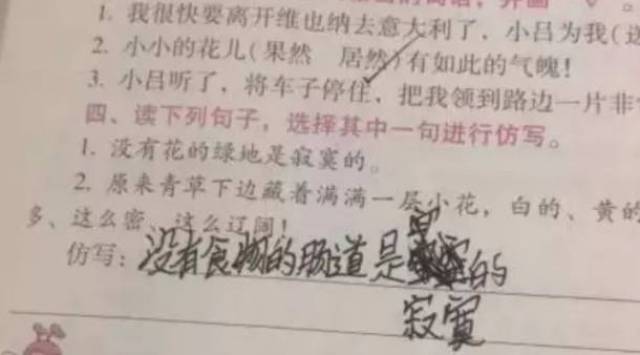 1. 我很快要离开维也纳去意大利了，小吕为我(
2. 小小的花儿(果然 居然)有如此的气魄!
3. 小吕听了，将车子停住，把我领到路边一片非
四、读下列句子，选择其中一句进行仿写。
1. 没有花的绿地是寂寞的。
2. 原来青草下边藏着满满一层小花，白的、黄的
多、这么密、这么辽阔!
仿写：没有食物的肠道是的
寂寞